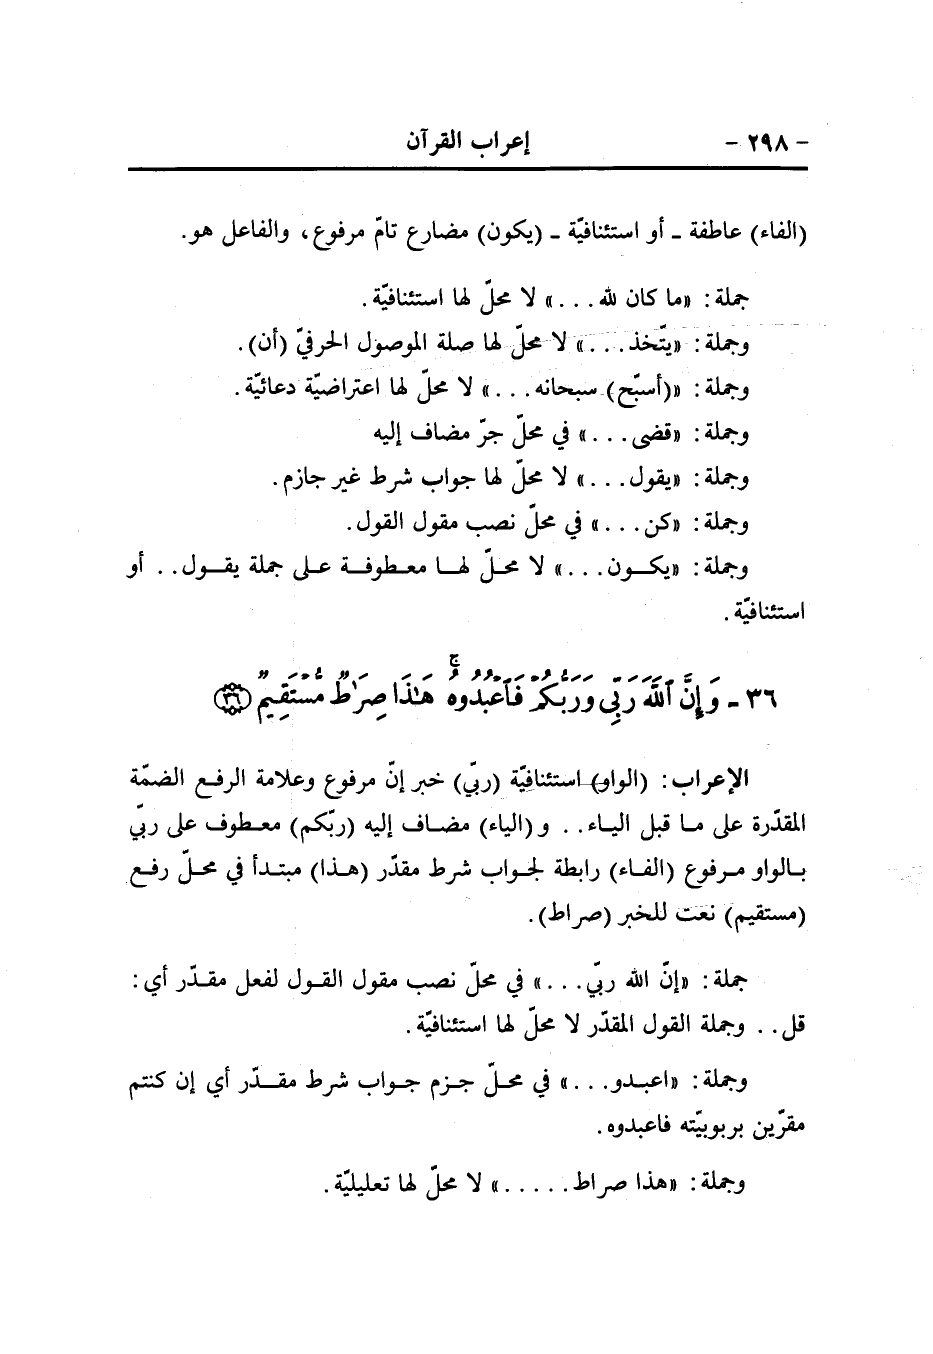 - ٢٩٨ - إعراب القرآن
(الفاء) عاطفة ـ أو استئنافيّة ـ (يكون) مضارع تامّ مرفوع، والفاعل هو.
جملة: «ما كان لله...» لا محلّ لها استئنافيّة.
وجملة: «يتّخذ...» لا محلّ لها صلة الموصول الحرفيّ (أن).
وجملة: «(أسبّح) سبحانه...» لا محلّ لها اعتراضيّة دعائيّة.
وجملة: «قضى...» في محلّ جرّ مضاف إليه
وجملة: «يقول...» لا محلّ لها جواب شرط غير جازم.
وجملة: «كن...» في محلّ نصب مقول القول.
وجملة: «يكون...» لا محلّ لها معطوفة على جملة يقول.. أو
استئنافيّة.
٣٦ - وَإِنَّ ٱللَّهَ رَبِّى وَرَبُّكُمْ فَٱعْبُدُوهُ ۚ هَٰذَا صِرَٰطٌ مُّسْتَقِيمٌ ﴿٣٦﴾
الإعراب: (الواو) استئنافيّة (ربّي) خبر إنّ مرفوع وعلامة الرفع الضمّة
المقدّرة على ما قبل الياء.. و(الياء) مضاف إليه (ربّكم) معطوف على ربّي
بالواو مرفوع (الفاء) رابطة لجواب شرط مقدّر (هذا) مبتدأ في محلّ رفع
(مستقيم) نعت للخبر (صراط).
جملة: «إنّ الله ربّي...» في محلّ نصب مقول القول لفعل مقدّر أي:
قل.. وجملة القول المقدّر لا محلّ لها استئنافيّة.
وجملة: «اعبدو...» في محلّ جزم جواب شرط مقدّر أي إن كنتم
مقرّين بربوبيّته فاعبدوه.
وجملة: «هذا صراط.....» لا محلّ لها تعليليّة.